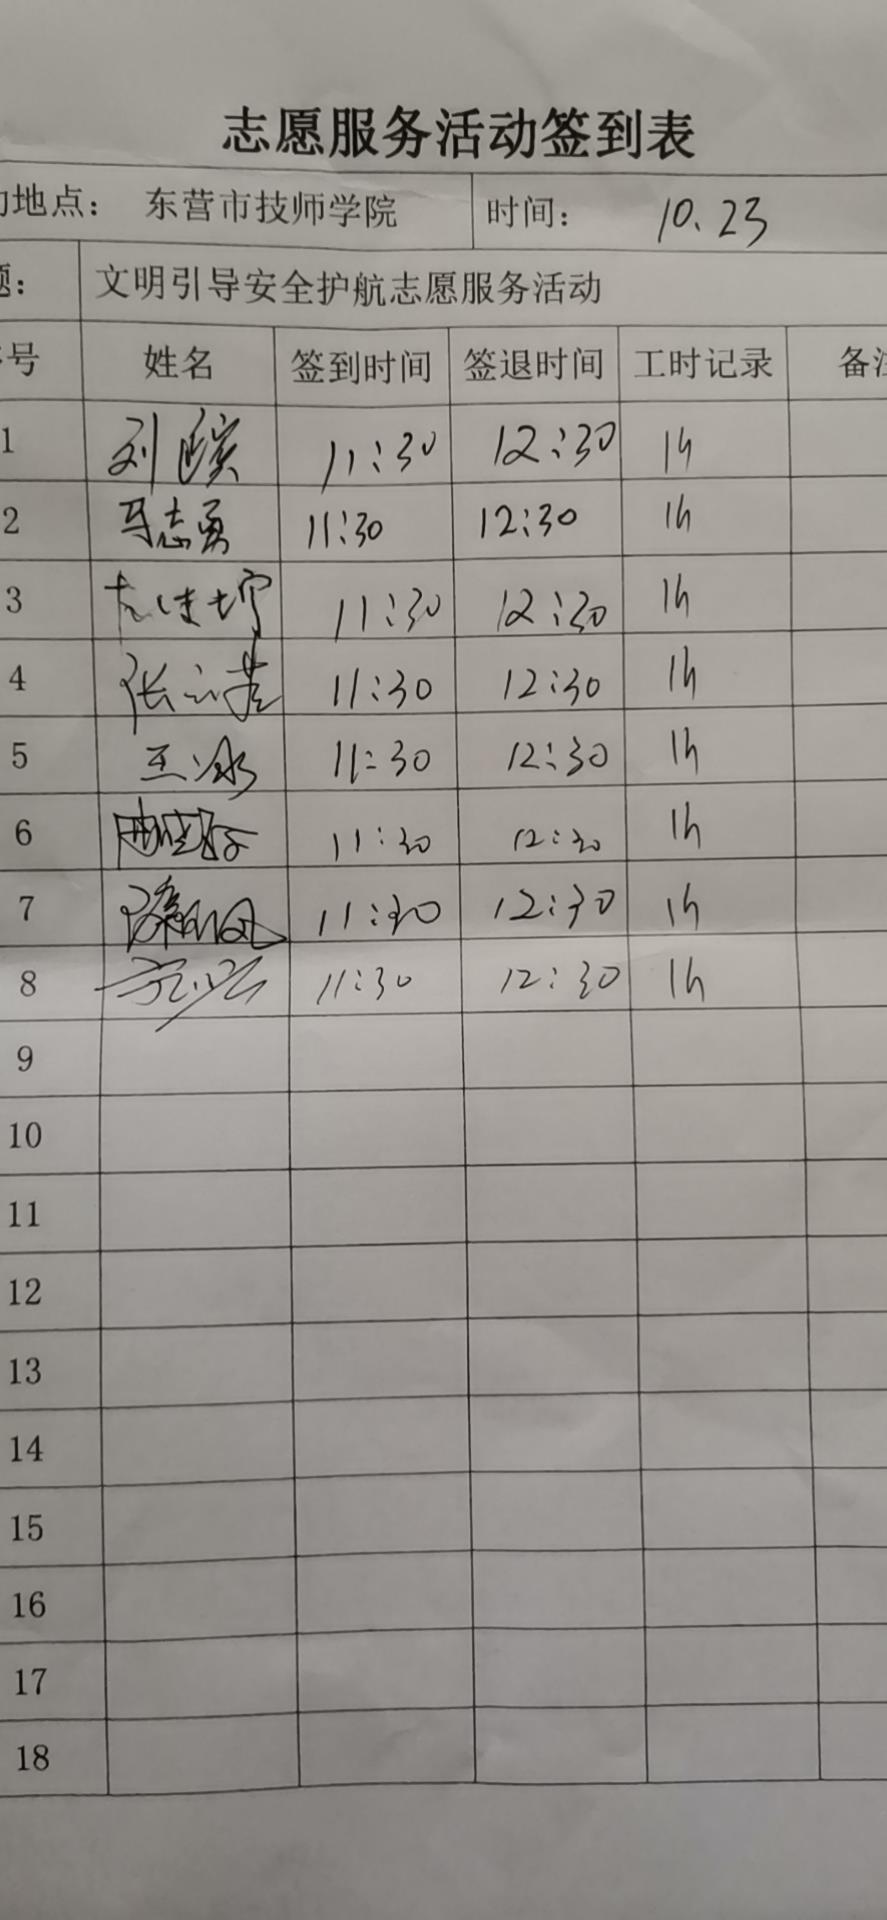 志愿服务活动签到表
动地点： 东营市技师学院 时间： 10.23
题： 文明引导安全护航志愿服务活动
序号 姓名 签到时间 签退时间 工时记录 备注
1 刘 11:30 12:30 1h
2 马志勇 11:30 12:30 1h
3 11:30 12:30 1h
4 张 11:30 12:30 1h
5 王冰 11:30 12:30 1h
6 11:30 12:30 1h
7 11:30 12:30 1h
8 11:30 12:30 1h
9
10
11
12
13
14
15
16
17
18